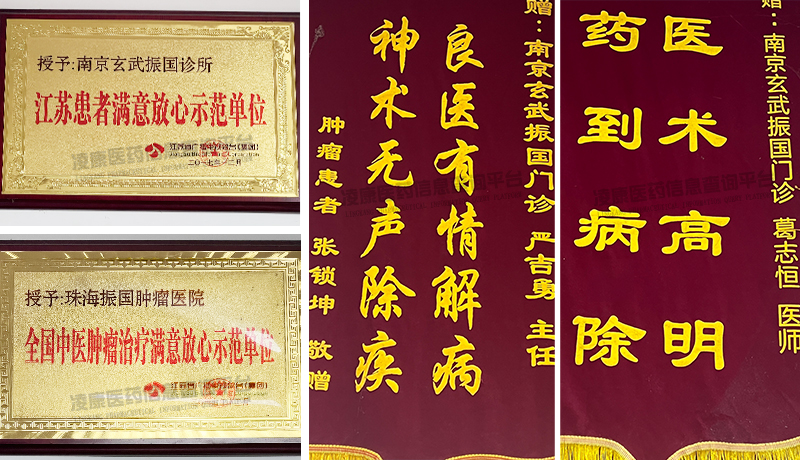 授予:南京玄武振国诊所
江苏患者满意放心示范单位
江苏省广播电视总台(集团)
授予:珠海振国肿瘤医院
全国中医肿瘤治疗满意放心示范单位
江苏省广播电视总台(集团)
赠:南京玄武振国门诊 严吉勇 主任
良医有情解病
神术无声除疾
肿瘤患者 张锁坤 敬赠
凌康医药信息查询平台
赠:南京玄武振国门诊 葛志恒 医师
医术高明
药到病除
凌康医药信息查询平台